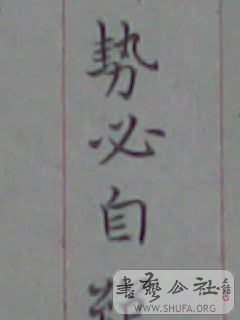 势必自
書藝公社
WWW.SHUFA.ORG